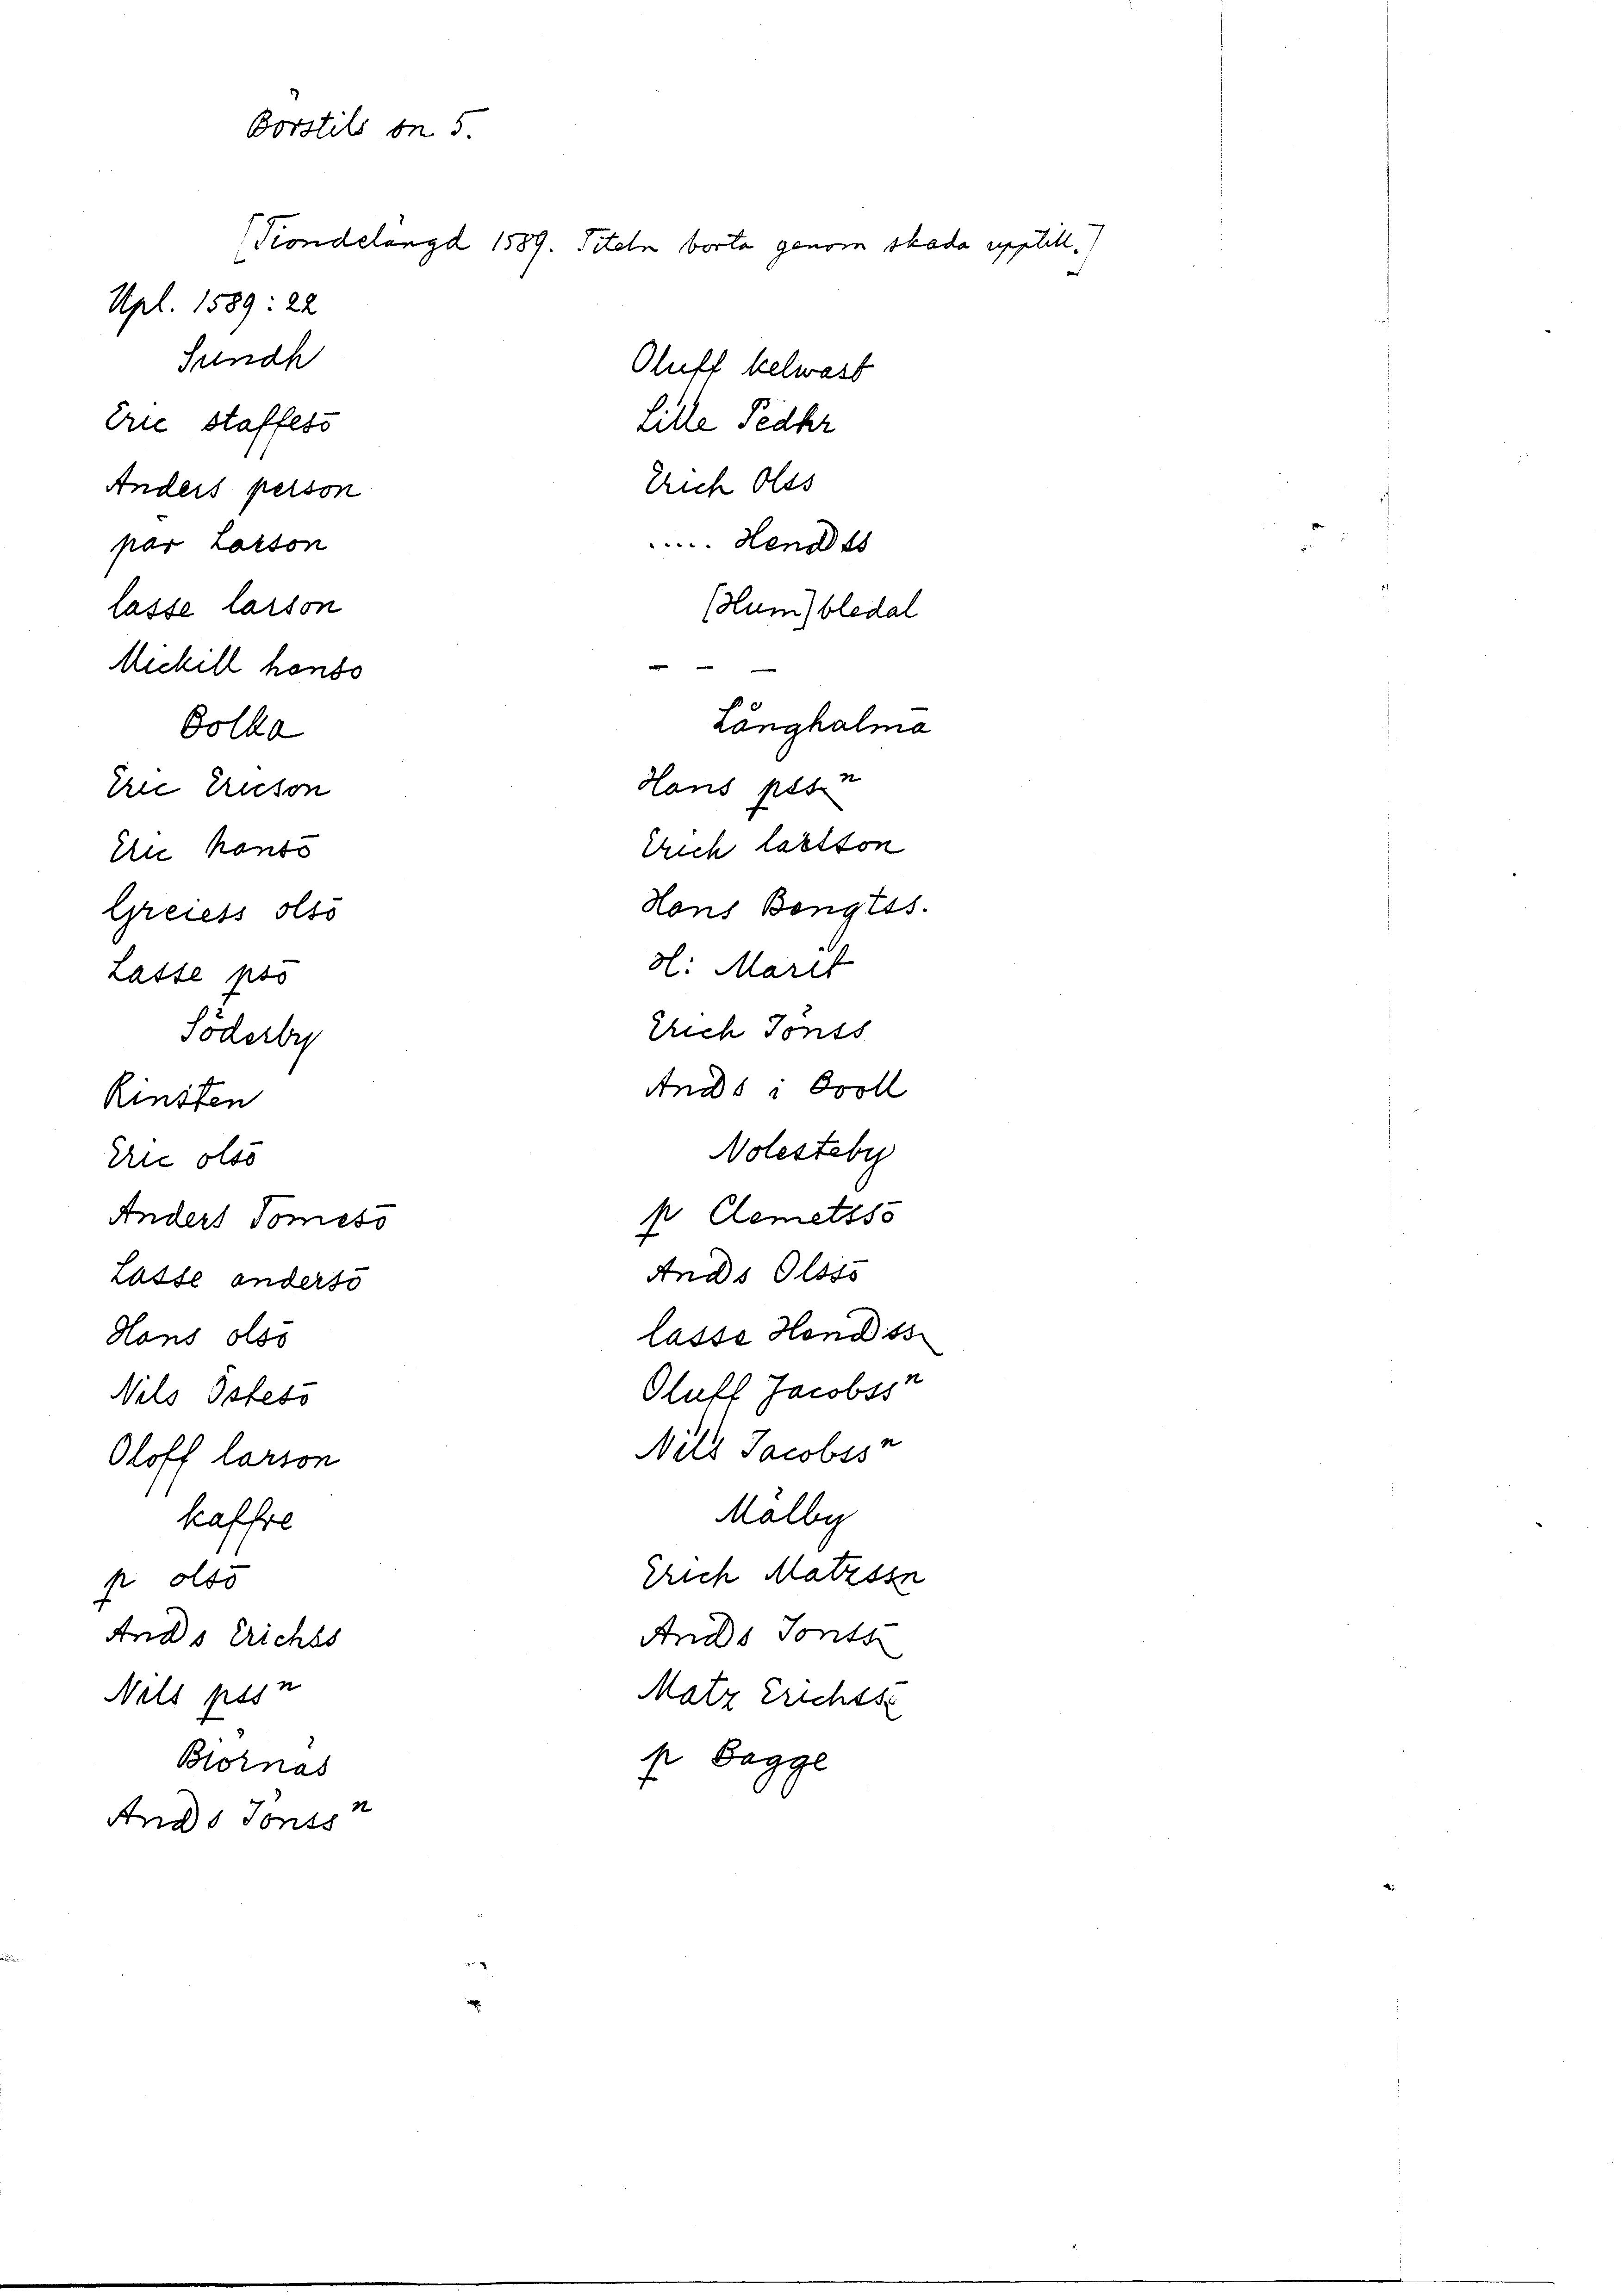 Börstils sn 5.
[Tiondelängd 1589. Titeln borta genom skada upptill.]
Upl. 1589:22
Sundh
Eric staffesō
Anders person
pär Larson
lasse larson
Mickill hanso
Bolka
Eric Ericson
Eric hansō
Greiess olsō
Lasse psō
Söderby
Rinsten
Eric olsō
Anders Tomesō
Lasse andersō
Hans olsō
Nils Östesō
Oloff larson
kaffre
p olsō
Ands Erichss
Nils pssn
Biörnäs
Ands Jönssn
Oluff kelwast
Lille Pedhr
Erich Olss
..... Hendss
(Hum)bledal
- - -
Långhalma
Hans pssn
Erich larsson
Hans Bengtss.
H: Marit
Erich Jönss
Ands i Boll
Nolesteby
p Clemetssō
Ands Olssō
lasse Hendss
Oluff Jacobssn
Nils Jacobssn
Målby
Erich Matzssn
Ands Jonss
Matz Erichss
p Bagge